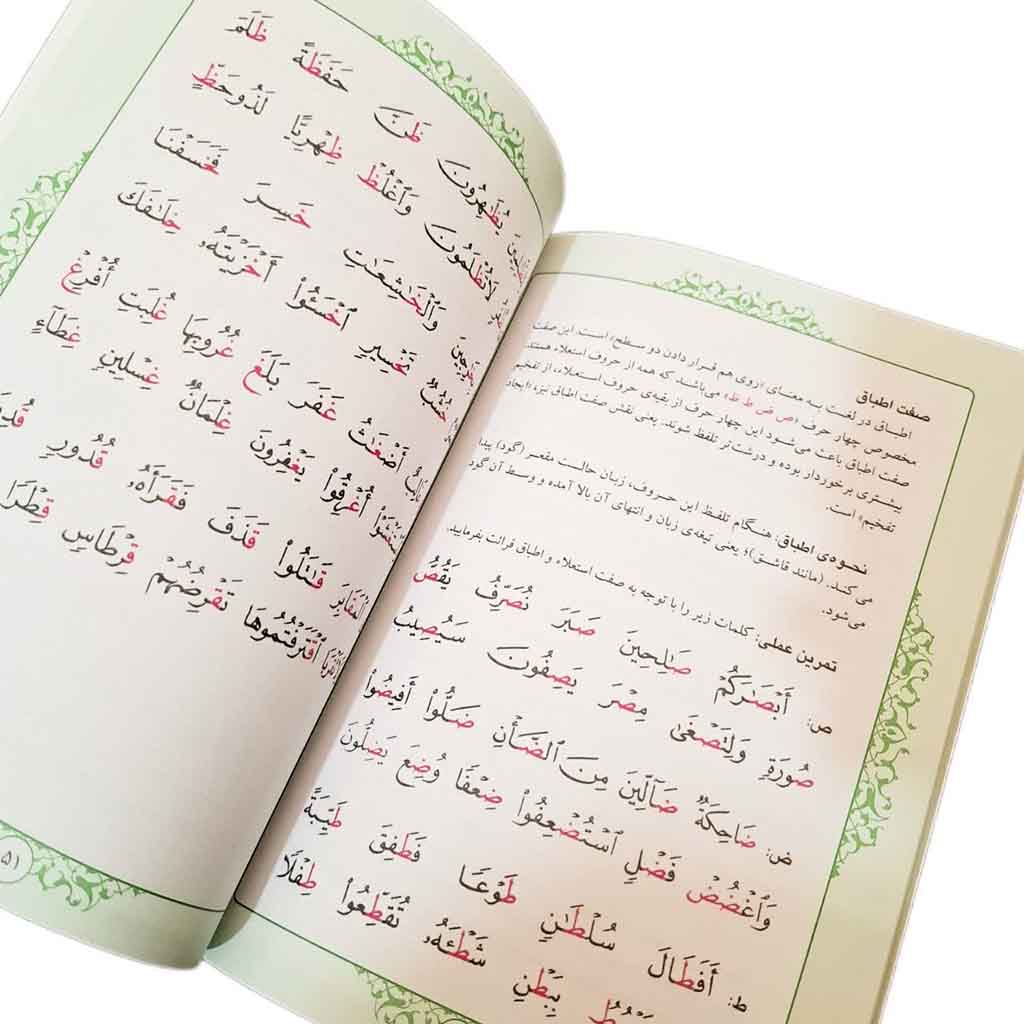 صفت اطباق
اطباق در لغت به معنای «روی هم قرار دادن دو سطح» است. این صفت
مخصوص چهار حرف «ص ض ط ظ» می‌باشند که همه از حروف استعلاء هستند.
صفت اطباق باعث می شود این چهار حرف از بقیه‌ی حروف استعلاء، از تفخیم
بیشتری برخوردار بوده و درشت‌تر تلفظ شوند. یعنی نقش صفت اطباق نیز «ایجاد
تفخیم» است.
نحوه‌ی اطباق: هنگام تلفظ این حروف، زبان حالت مقعر (گود) پیدا
می کند. (مانند قاشق)؛ یعنی تیغه‌ی زبان و انتهای آن بالا آمده و وسط آن گود
می شود.
تمرین عملی: کلمات زیر را با توجه به صفت استعلاء و اطباق قرائت بفرمایید.
ص: أَبْصَـٰرَكُمْ صَـٰلِحِينَ صَبَرَ نُصَرِّفُ يَقُصُّ
صُورَةٍ وَلِتَصْغَىٰ مِصْرَ يَصِفُونَ سَيُصِيبُ
ض: ضَاحِكَةٌ ضَآلِّينَ مِنَ ٱلضَّأْنِ ضَلُّوا۟ أَفِيضُوا۟
وَٱغْضُضْ فَضْلِ ٱسْتُضْعِفُوا۟ ضَعْفًا وُضِعَ يَضِلُّونَ
ط: أَفَطَالَ سُلْطَـٰنٍ طَوْعًا فَطَفِقَ طَيِّبَةً
بِبَطْنِ شَطْـَٔهُۥ تُقَطِّعُوا۟ طِفْلًا
يُظَـٰهِرُونَ ظَنَّ حَفَظَةً ظَلَمَ
لَاتُظْلَمُونَ وَٱغْلُظْ ظِهْرِيًّا لَذُوحَظٍّ
وَٱلْخَـٰشِعَـٰتِ خَسِرَ فَخَسَفْنَا
خُشُبٌ تَخْسِيرٍ ٱخْسَـُٔوا۟ أَخْزَيْتَهُۥ خِلَـٰفَكَ
أَضْغَـٰثُ غَفَرَ بَلَغَ غُرُوبِهَا غُلِبَتِ أُفْرِغْ
أُغْرِقُوا۟ يَغْفِرُونَ غِلْمَانٌ غِسْلِينٍ غِطَآءٍ
ٱلْمَقَابِرَ قَـٰتَلُوا۟ قَذَفَ فَقَرَأَهُۥ قُدُورٍ
ٱقْتَرَفْتُمُوهَا تَقْرِضُهُمْ قِرْطَاسٍ قِطْرًا
۵۱